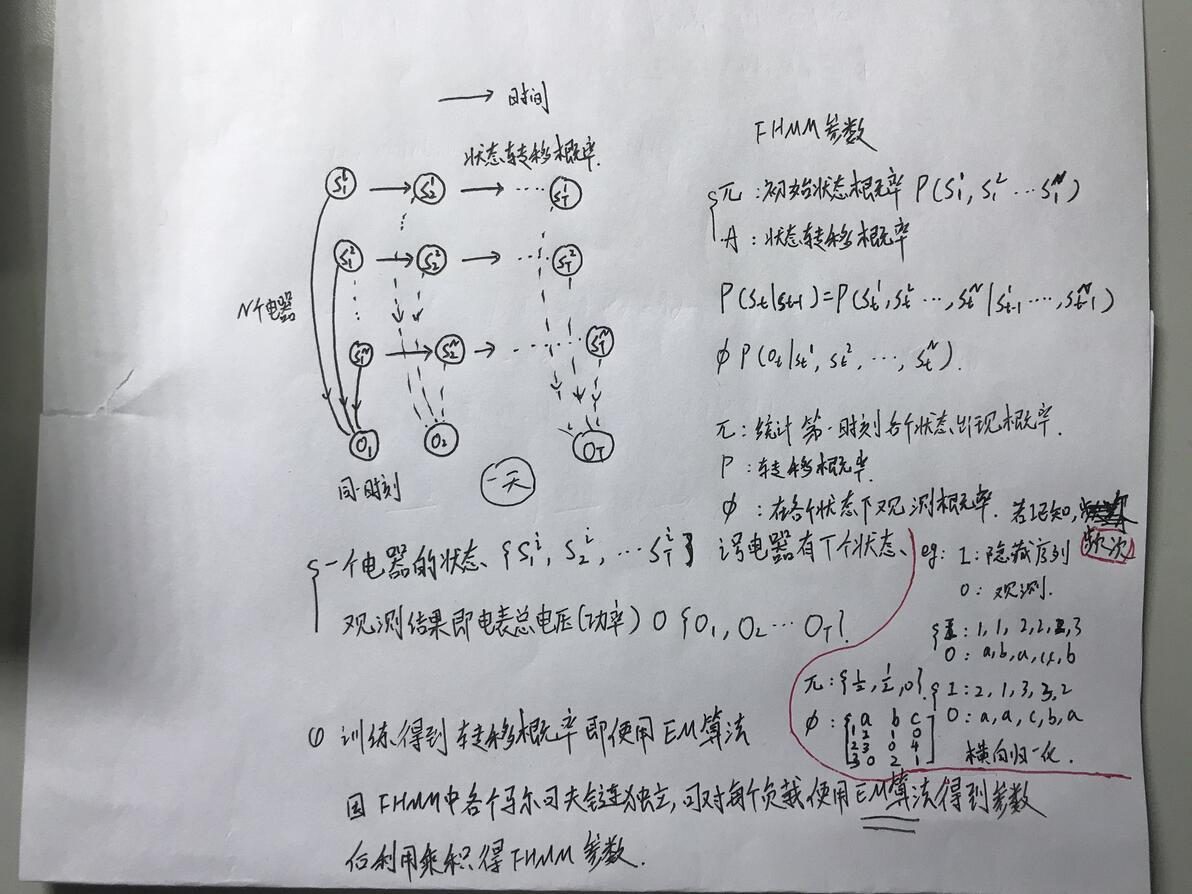 → 时间
状态转移概率.
S₁¹ → S₂¹ → ‥‥ S_T¹
S₁² → S₂² → ‥‥ S_T²
N个电器
S₁ᴺ → S₂ᴺ → ‥‥ S_Tᴺ
O₁ O₂ O_T
同一时刻
一天
FHMM参数
π:初始状态概率 P(S₁¹, S₁² … S₁ᴺ)
A:状态转移概率
P(St|St-1)=P(St¹,St² …, Stᴺ|S¹t-1 …, Sᴺt-1)
φ P(Ot|St¹, St², …, Stᴺ).
π:统计第一时刻各个状态出现概率.
P:转移概率.
φ:在各个状态下观测概率. 若I已知,
频次
{一个电器的状态、{S₁ⁱ, S₂ⁱ, … S_Tⁱ} 该电器有T个状态、
观测结果即电表总电压(功率) O {O₁, O₂ … O_T}.
eg: I:隐藏序列
O:观测.
{I:1, 1, 2, 2, 2, 3
O:a, b, a, c, b
π:{½, ½, 0}.
{I:2, 1, 3, 3, 2
O:a, a, c, b, a
φ:{a b c
1 2 1 0
2 3 0 4
3 0 2 1
横向归一化.
(1) 训练得到转移概率即使用EM算法
因FHMM中各个马尔可夫链独立,可对每个负载使用EM算法得到参数
后利用乘积得FHMM参数.